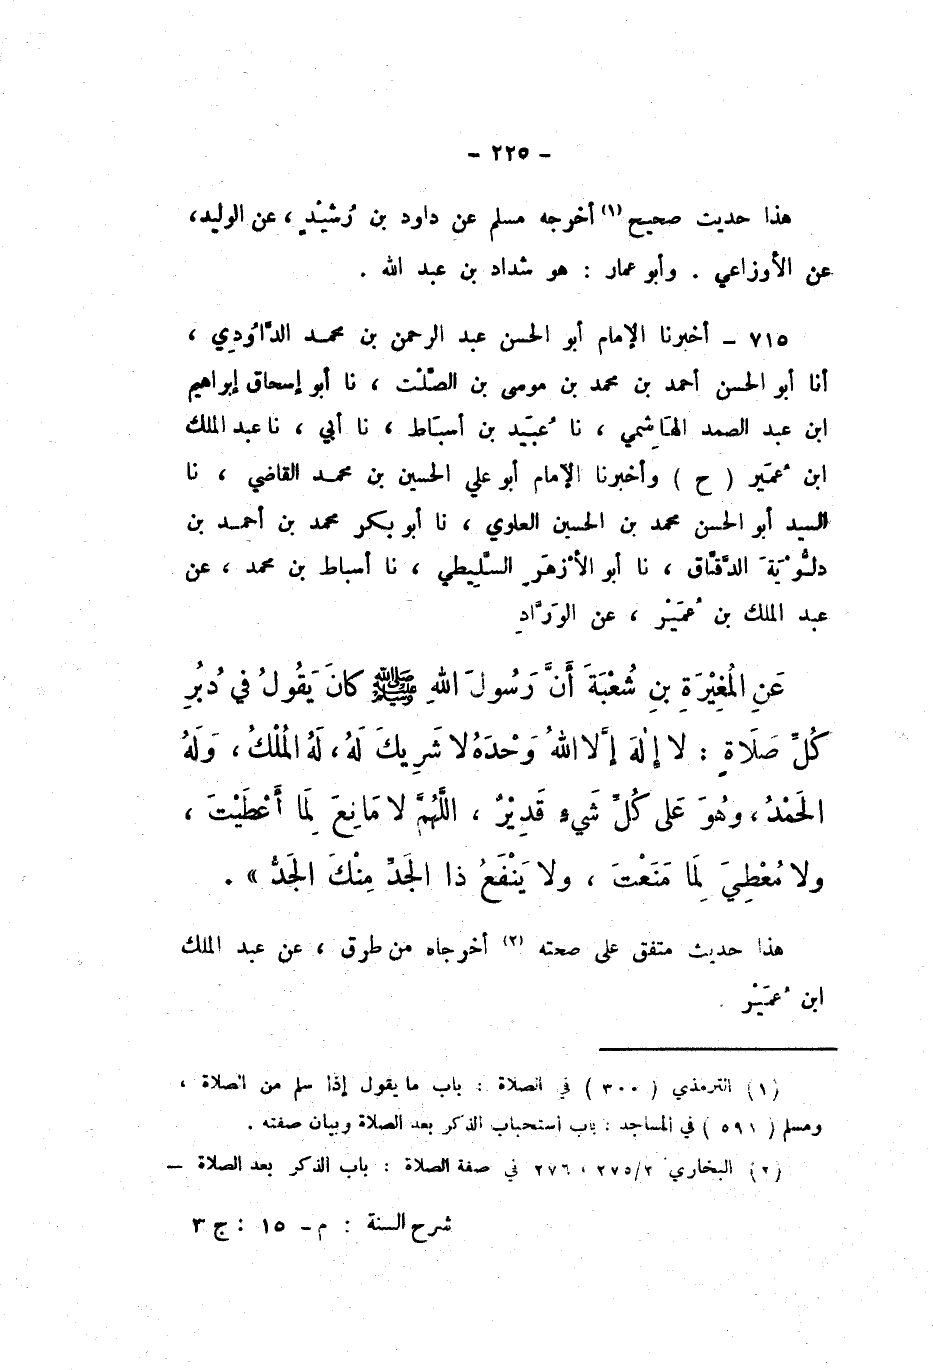 - ٢٢٥ -
هذا حديث صحيح (١) أخرجه مسلم عن داود بن رُشَيْدٍ ، عن الوليد،
عن الأوزاعي . وأبو عمار : هو شداد بن عبد الله .
٧١٥ - أخبرنا الإمام أبو الحسن عبد الرحمن بن محمد الدَّاوُدِي ،
أنا أبو الحسن أحمد بن محمد بن موسى بن الصَّلْت ، نا أبو إسحاق إبراهيم
ابن عبد الصمد الهَاشِمي ، نا عُبَيْد بن أسبَاط ، نا أبي ، نا عبد الملك
ابن عُمَير ( ح ) وأخبرنا الإمام أبو علي الحسين بن محمد القاضي ، نا
السيد أبو الحسن محمد بن الحسين العلوي ، نا أبو بكر محمد بن أحمد بن
دلُّوْيَةَ الدَّقَّاق ، نا أبو الأزْهَرِ السَّلِيطي ، نا أسباط بن محمد ، عن
عبد الملك بن عُمَيْر ، عن الوَرَّادِ
عَنِ المُغِيْرَةِ بنِ شُعْبَةَ أَنَّ رَسُولَ اللهِ ﷺ كانَ يَقُولُ في دُبُرِ
كُلِّ صَلَاةٍ : لا إلهَ إلَّا اللهُ وَحْدَهُ لا شَرِيكَ لَهُ، لَهُ المُلْكُ ، وَلَهُ
الحَمْدُ ، وهُوَ عَلى كُلِّ شَيءٍ قَدِيْرٌ ، اللَّهُمَّ لا مَانِعَ لِمَا أَعْطَيْتَ ،
ولا مُعْطِيَ لِمَا مَنَعْتَ ، ولا يَنْفَعُ ذا الجَدِّ مِنْكَ الجَدُّ » .
هذا حديث متفق على صحته (٢) أخرجاه من طرق ، عن عبد الملك
ابن عُمَيْر .
(١) الترمذي ( ٣٠٠ ) في الصلاة : باب ما يقول إذا سلم من الصلاة ،
ومسلم ( ٥٩١ ) في المساجد : باب استحباب الذكر بعد الصلاة وبيان صفته .
(٢) البخاري ٢/ ٢٧٥ ، ٢٧٦ في صفة الصلاة : باب الذكر بعد الصلاة –
شرح السنة : م – ١٥ : ج ٣